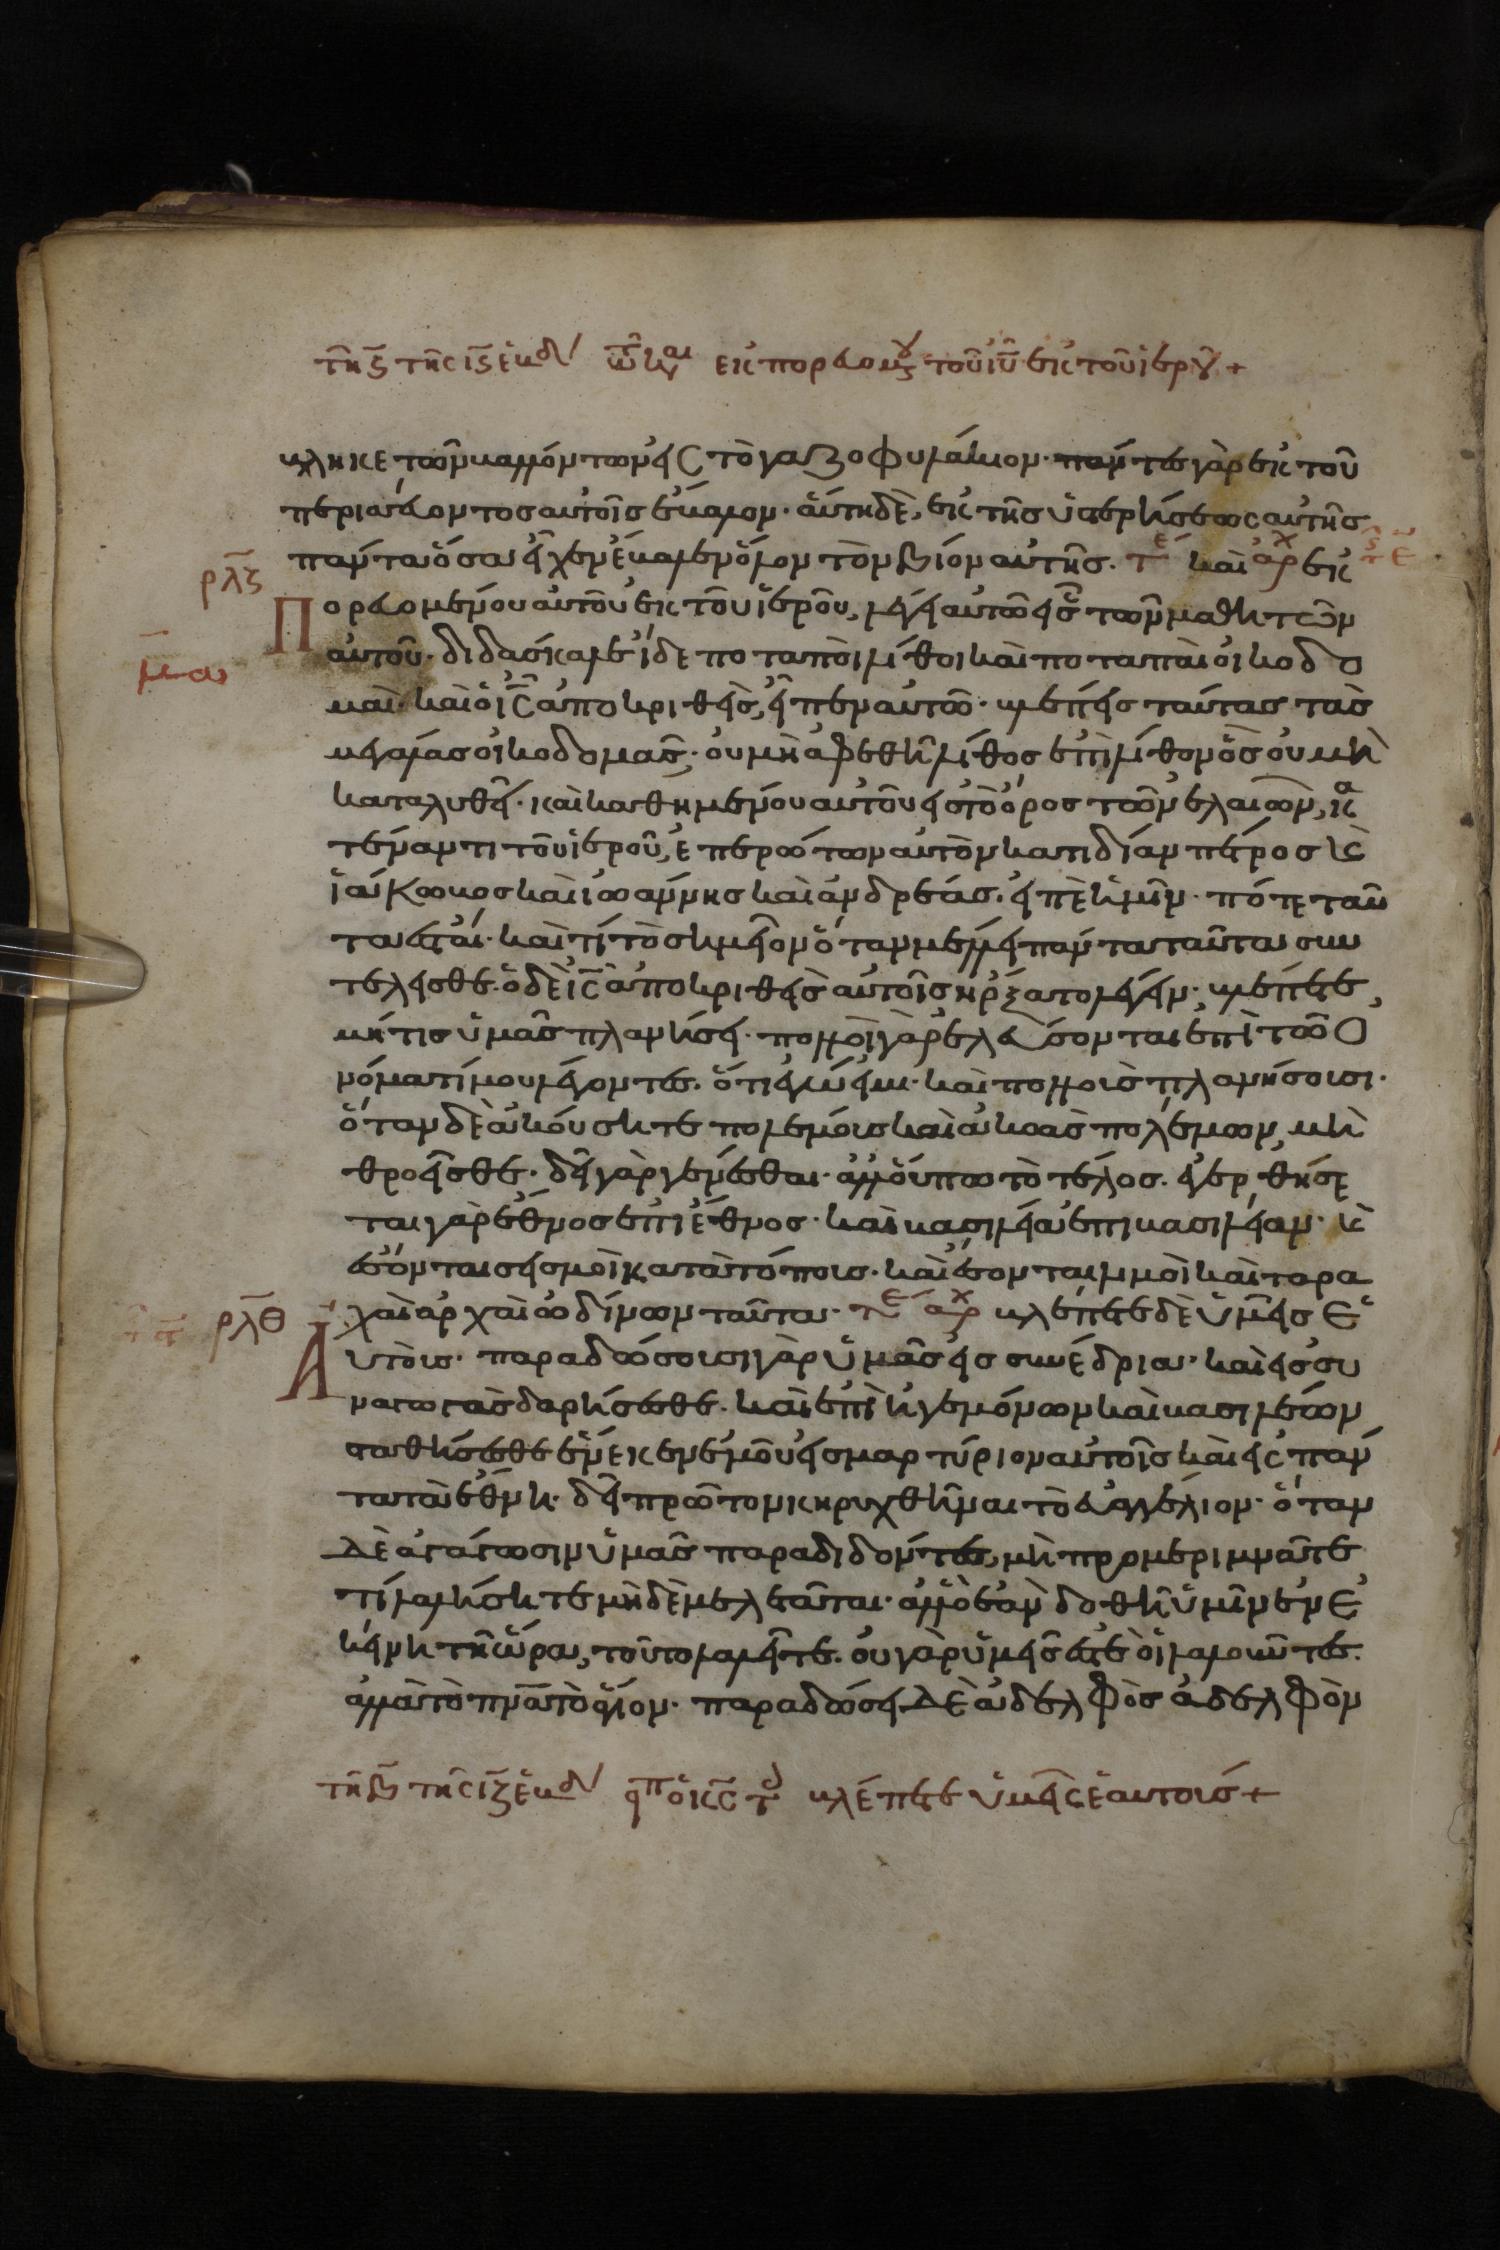 τῆ ϛ τῆς ιϛ ἑβδ τῶ και εκπορευομ τοῦ ιυ εκ τοῦ ἱεροῦ +
βληκε τῶν βαλλόντων εἰς τὸ γαζοφυλάκιον· πάντες γὰρ ἐκ τοῦ
περισσεύοντος αὐτοῖς ἔβαλον· αὕτη δὲ, ἐκ τῆς ὑστερήσεως αὐτῆς
πάντα ὅσα εἶχεν ἔβαλεν ὅλον τὸν βίον αὐτῆς. τε και αρχ ἐκ
ρλζ
Πορευομένου αὐτοῦ ἐκ τοῦ ἱεροῦ, λέγει αὐτῶ εἷς τῶν μαθητῶν
μα
αὐτοῦ· διδάσκαλε ἴδε ποταποὶ λίθοι καὶ ποταπαὶ οἰκοδο
μαί· καὶ ὁ ις ἀποκριθεὶς, εἶπεν αὐτῶ· βλέπεις ταύτας τὰς
μεγάλας οἰκοδομάς· οὐ μὴ ἀφεθῆ λίθος ἐπὶ λίθον ὃς οὐ μὴ
καταλυθεῖ· καὶ καθημένου αὐτοῦ εἰς τὸ ὄρος τῶν ἐλαιῶν, κα
τέναντι τοῦ ἱεροῦ, ἐπερώτων αὐτὸν κατιδίαν πέτρος κὲ
ἰάκωβος καὶ ἰωάννης καὶ ἀνδρέας. εἰπὲ ἡμῖν· πότε ταῦ
τα ἔσται· καὶ τί τὸ σημεῖον ὅταν μέλλει πάντα ταῦτα συν
τελεῖσθε· ὁ δὲ ις ἀποκριθεὶς αὐτοῖς ἤρξατο λέγειν· βλέπετε,
μή τις ὑμᾶς πλανήσει· πολλοὶ γὰρ ἐλεύσονται ἐπὶ τῶ ὀ
νόματί μου λέγοντες· ὅτι ἐγώ εἰμι· καὶ πολλοὺς πλανήσουσι·
ὅταν δὲ ἀκούσητε πολέμους καὶ ἀκοὰς πολέμων, μὴ
θροεῖσθε· δεῖ γὰρ γενέσθαι· ἀλλ οὔπω τὸ τέλος. ἐγερθήσε
ται γὰρ ἔθνος ἐπὶ ἔθνος· καὶ βασιλεία ἐπι βασιλείαν· κὲ
ἔσονται σεισμοὶ κατὰ τόπους· καὶ ἔσονται λιμοὶ καὶ ταρα
ρλθ
χαὶ ἀρχαὶ ὠδίνων ταῦτα· τε αρχ βλέπετε δὲ ὑμεῖς ἑ
Αυτούς· παραδώσουσι γὰρ ὑμᾶς εἰς συνέδρια· καὶ εἰς συ
ναγωγὰς δαρήσεσθε· καὶ ἐπὶ ἡγεμόνων καὶ βασιλέων
σταθήσεσθε ἕνεκεν ἐμοῦ εἰς μαρτύριον αὐτοῖς καὶ εἰς πάν
τα τὰ ἔθνη· δεῖ πρῶτον κηρυχθῆναι τὸ εὐαγγέλιον· ὅταν
δὲ ἀγάγωσιν ὑμᾶς παραδιδόντες, μὴ προμεριμνᾶτε
τί λαλήσητε μὴ δὲ μελετᾶται· ἀλλ ὃ ἐὰν δοθῆ ὑμῖν ἐν ἐ
κείνη τῆ ὥρα, τοῦτο λαλεῖτε· οὐ γὰρ ὑμεῖς ἐστὲ οἱ λαλοῦντες·
ἀλλὰ τὸ πνα τὸ ἅγιον· παραδώσει δὲ ἀδελφὸς ἀδελφὸν
τῆ β τῆς ιζ ἑβδ ειπ ὁ κς τ βλέπετε ὑμεῖς ἑαυτούς +